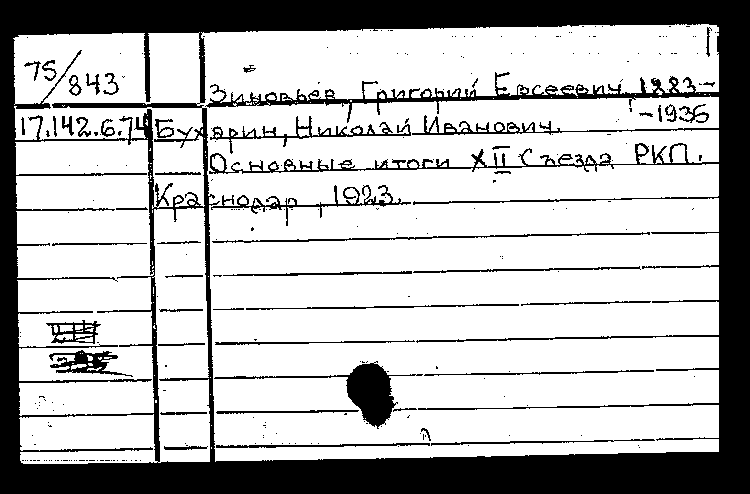 75/843
Зиновьев, Григорий Евсеевич, 1883-
-1936
17.142.6.74 Бухарин, Николай Иванович.
Основные итоги XII Съезда РКП.
Краснодар, 1923.